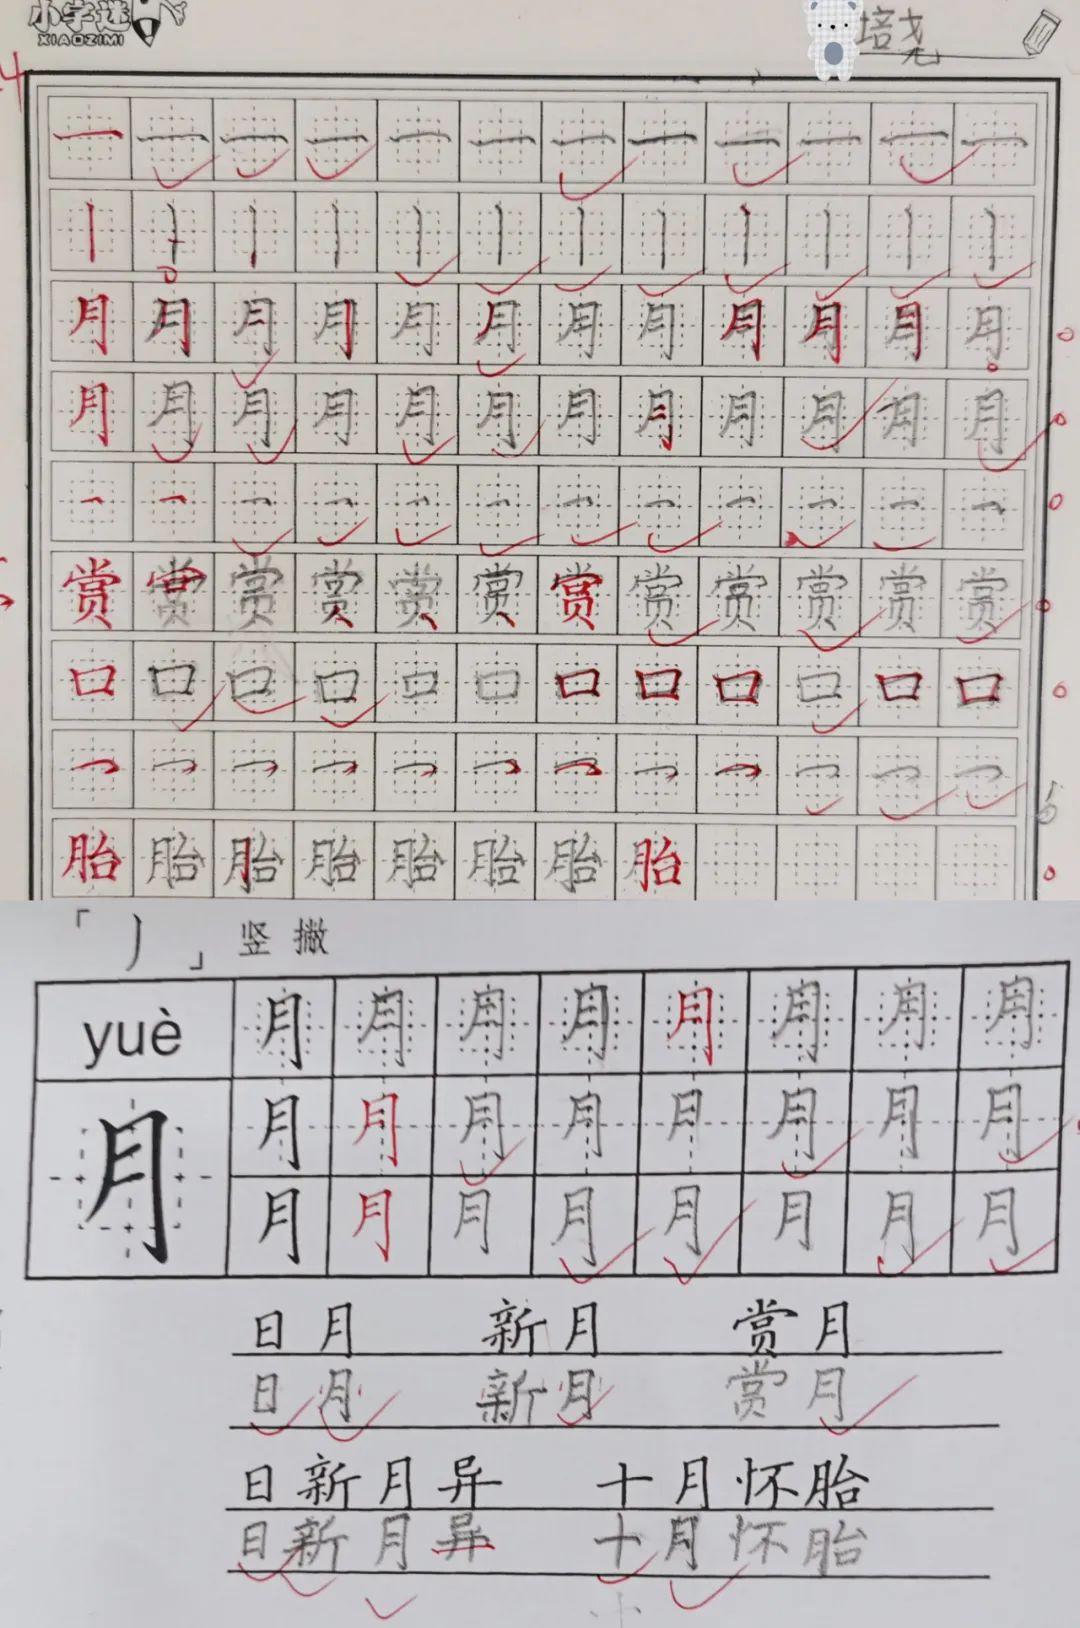 小字迷
XIAOZIMI
培尧
一 一 一 一 一 一 一 一 一 一 一 一
丨 丨 丨 丨 丨 丨 丨 丨 丨 丨 丨 丨
月 月 月 月 月 月 月 月 月 月 月 月
月 月 月 月 月 月 月 月 月 月 月 月
一 一 一 一 一 一 一 一 一 一 一 一
赏 赏 赏 赏 赏 赏 赏 赏 赏 赏 赏 赏
口 口 口 口 口 口 口 口 口 口 口 口
乛 乛 乛 乛 乛 乛 乛 乛 乛 乛 乛 乛
胎 胎 胎 胎 胎 胎 胎 胎
「丿」竖撇
yuè 月 月 月 月 月 月 月 月
月 月 月 月 月 月 月 月 月
月 月 月 月 月 月 月 月
日月 新月 赏月
日月 新月 赏月
日新月异 十月怀胎
日新月异 十月怀胎